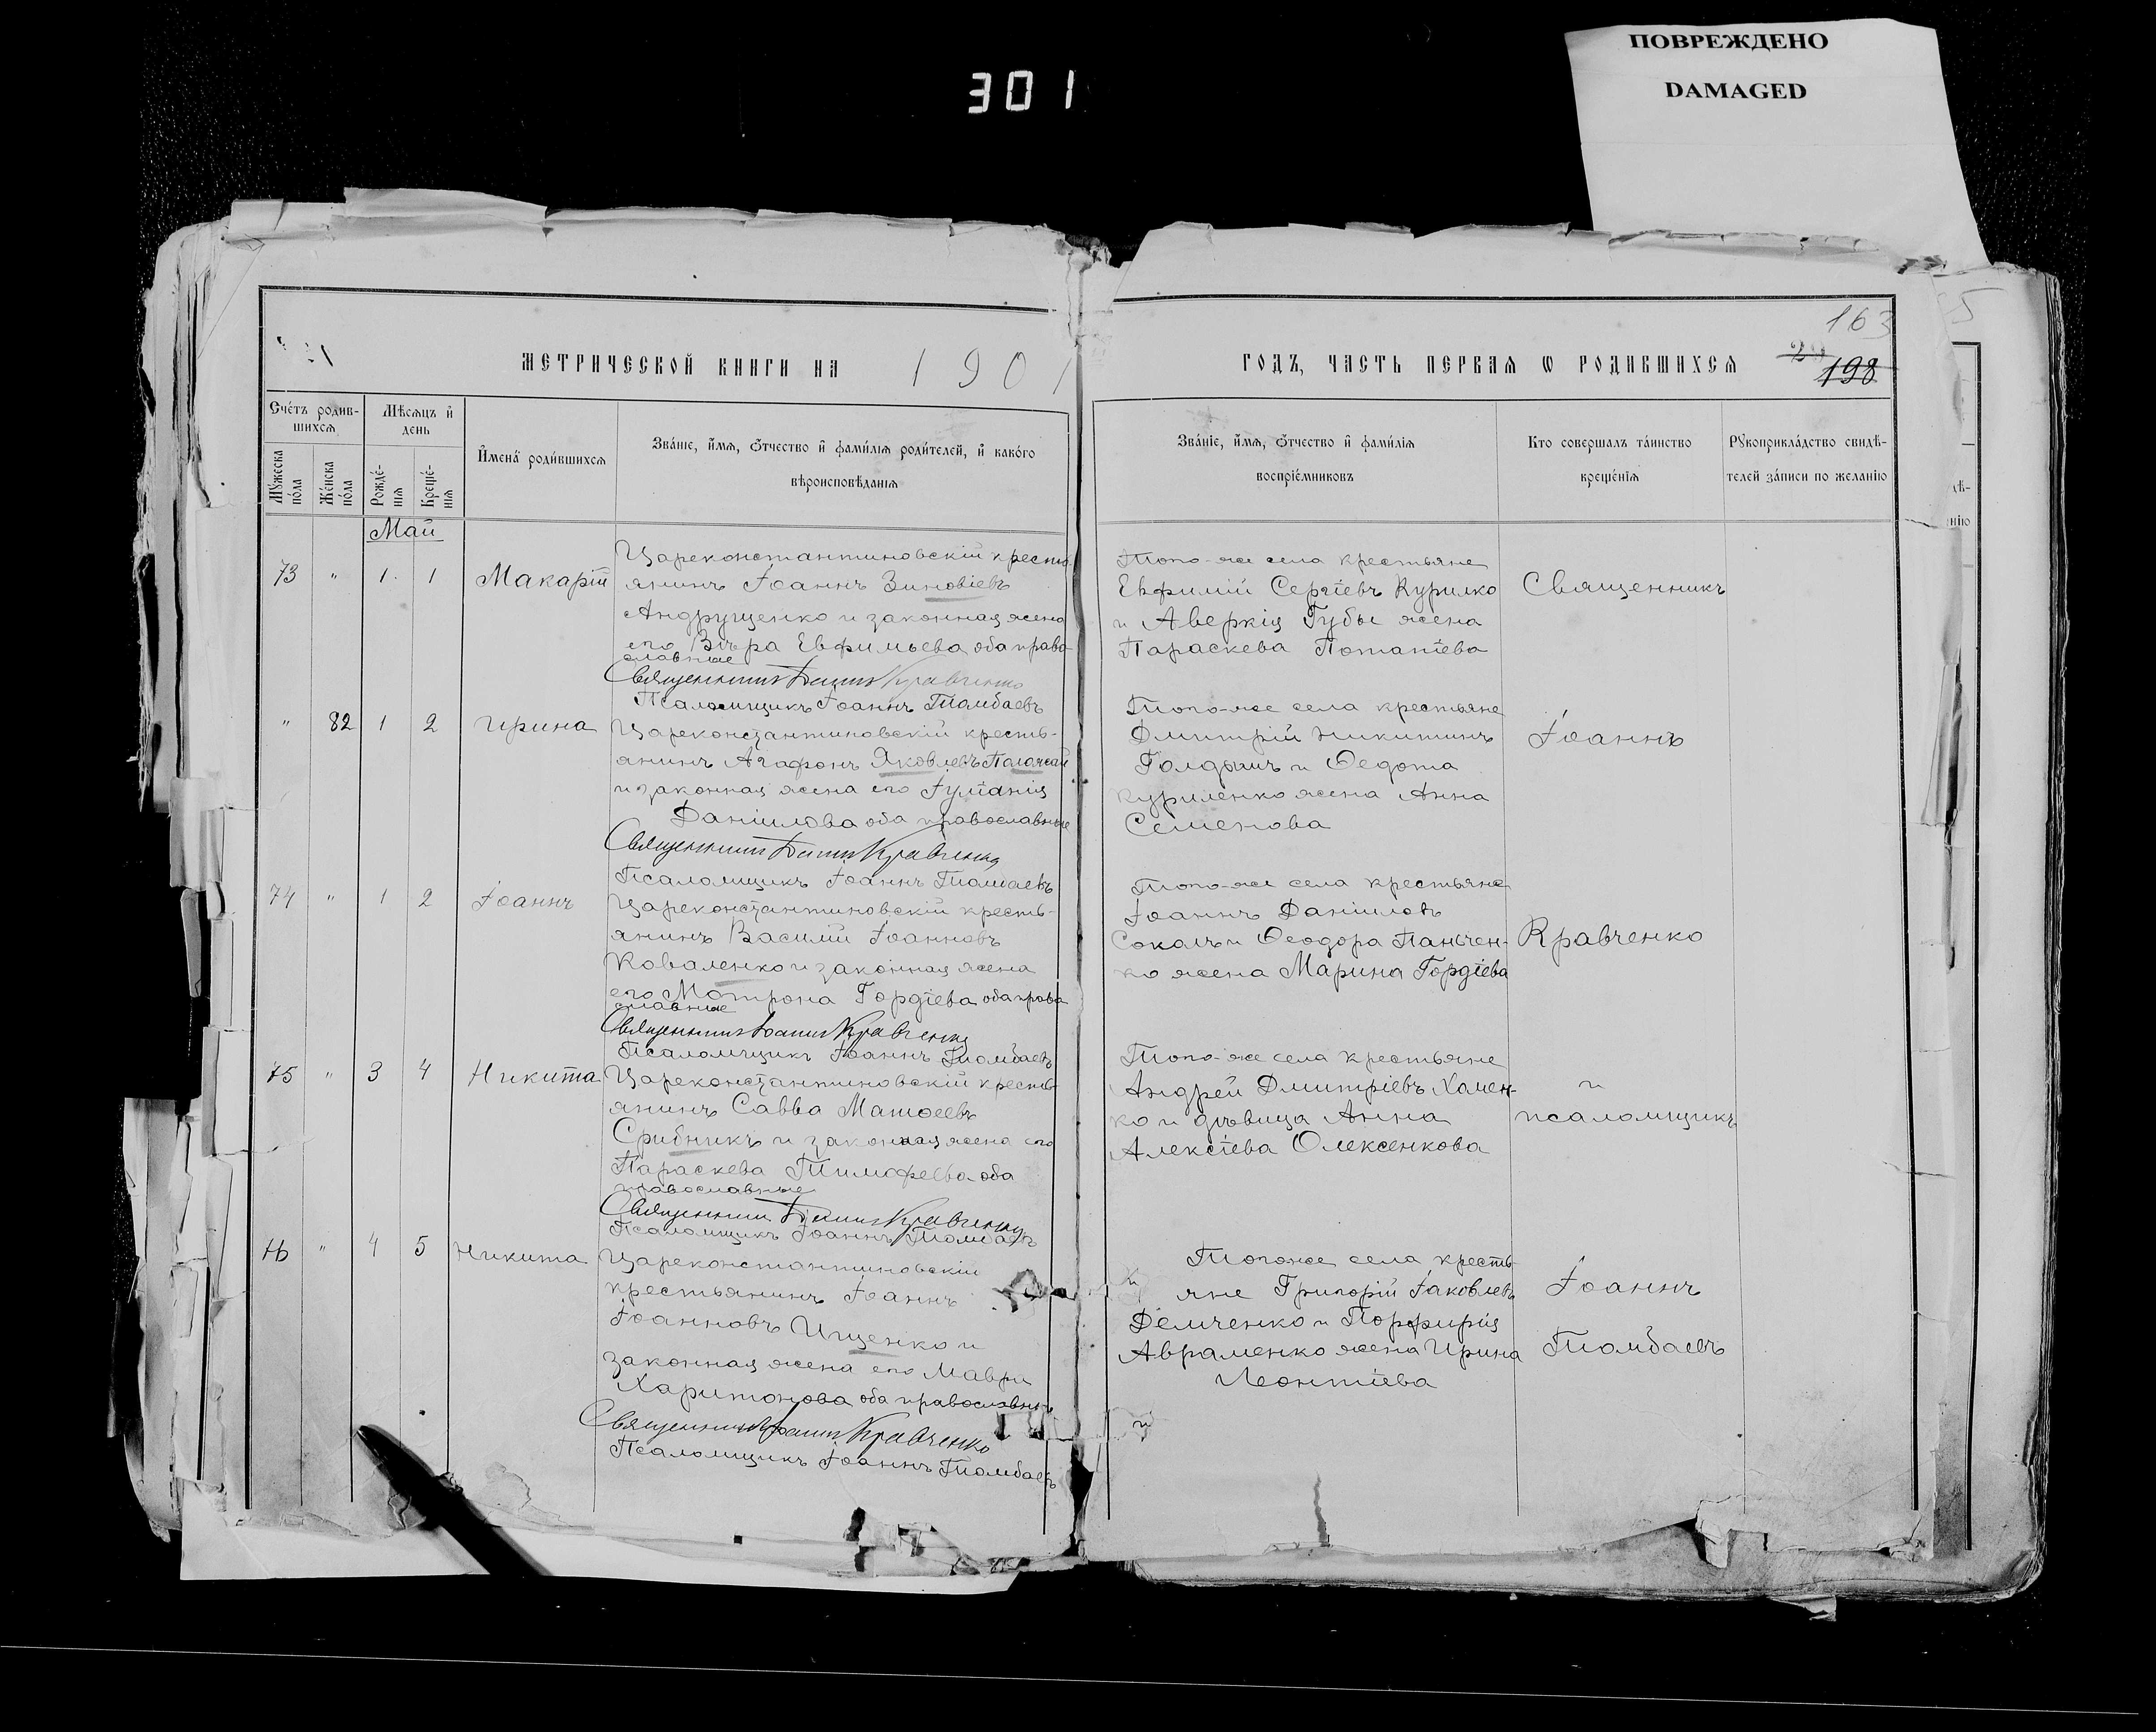 ПОВРЕЖДЕНО
DAMAGED
301
163
МЕТРИЧЕСКОЙ КНИГИ НА 1901
ГОДЪ, ЧАСТЬ ПЕРВАЯ Ѡ РОДИВШИХСЯ
198
Счетъ родив-
шихся
Мужеска
пола
Женска
пола
Мѣсяцъ и
день
Рожде-
нія
Креще-
нія
Имена родившихся
Званіе, имя, отчество и фамилія родителей, и какого
вѣроисповѣданія
Званіе, имя, отчество и фамилія
воспріемниковъ
Кто совершалъ таинство
крещенія
Рукоприкладство свидѣ-
телей записи по желанію
Май
73 " 1 1 Макарій
Цареконстантиновскій кресть
янинъ Іоаннъ Зиновіевъ
Андрущенко и законная жена
его Вѣра Евфимьева оба право
славные
Священникъ Іоаннъ Кравченко
Псаломщикъ Іоаннъ Томбаевъ
Того-же села крестьяне
Евфимій Сергіевъ Курилко
и Аверкія Губы жена
Параскева Потапіева
Священникъ
" 82 1 2 Ирина
Цареконстантиновскій кресть-
янинъ Агафонъ Яковлевъ
и законная жена его Іуліанія
Даніилова оба православные
Священникъ Іоаннъ Кравченко
Псаломщикъ Іоаннъ Томбаевъ
Того-же села крестьяне
Дмитрій Никитинъ
и Ѳедота
Куриленко жена Анна
Семенова
Іоаннъ
74 " 1 2 Іоаннъ
Цареконстантиновскій кресть-
янинъ Василій Іоанновъ
Коваленко и законная жена
его Матрона Гордіева оба право
славные
Священникъ Іоаннъ Кравченко
Псаломщикъ Іоаннъ Томбаевъ
Того-же села крестьяне
Іоаннъ Даніиловъ
Сокалъ и Ѳеодора Панчен-
ко жена Марина Гордіева
Кравченко
75 " 3 4 Никита
Цареконстантиновскій кресть-
янинъ Савва Матѳеевъ
Срибникъ и законная жена его
Параскева Тимофеева оба
православные
Священникъ Іоаннъ Кравченко
Псаломщикъ Іоаннъ Томбаевъ
Того-же села крестьяне
Андрей Дмитріевъ Хомен-
ко и дѣвица Анна
Алексіева Олексенкова
и
псаломщикъ
76 " 4 5 Никита
Цареконстантиновскій
крестьянинъ Іоаннъ
Іоанновъ Ищенко и
законная жена его Мавра
Харитонова оба православные
Священникъ Іоаннъ Кравченко
Псаломщикъ Іоаннъ Томбаевъ
Тогоже села кресть-
яне Григорій Іаковлевъ
Демченко и Порфирія
Авраменко жена Ирина
Леонтіева
Іоаннъ
Томбаевъ